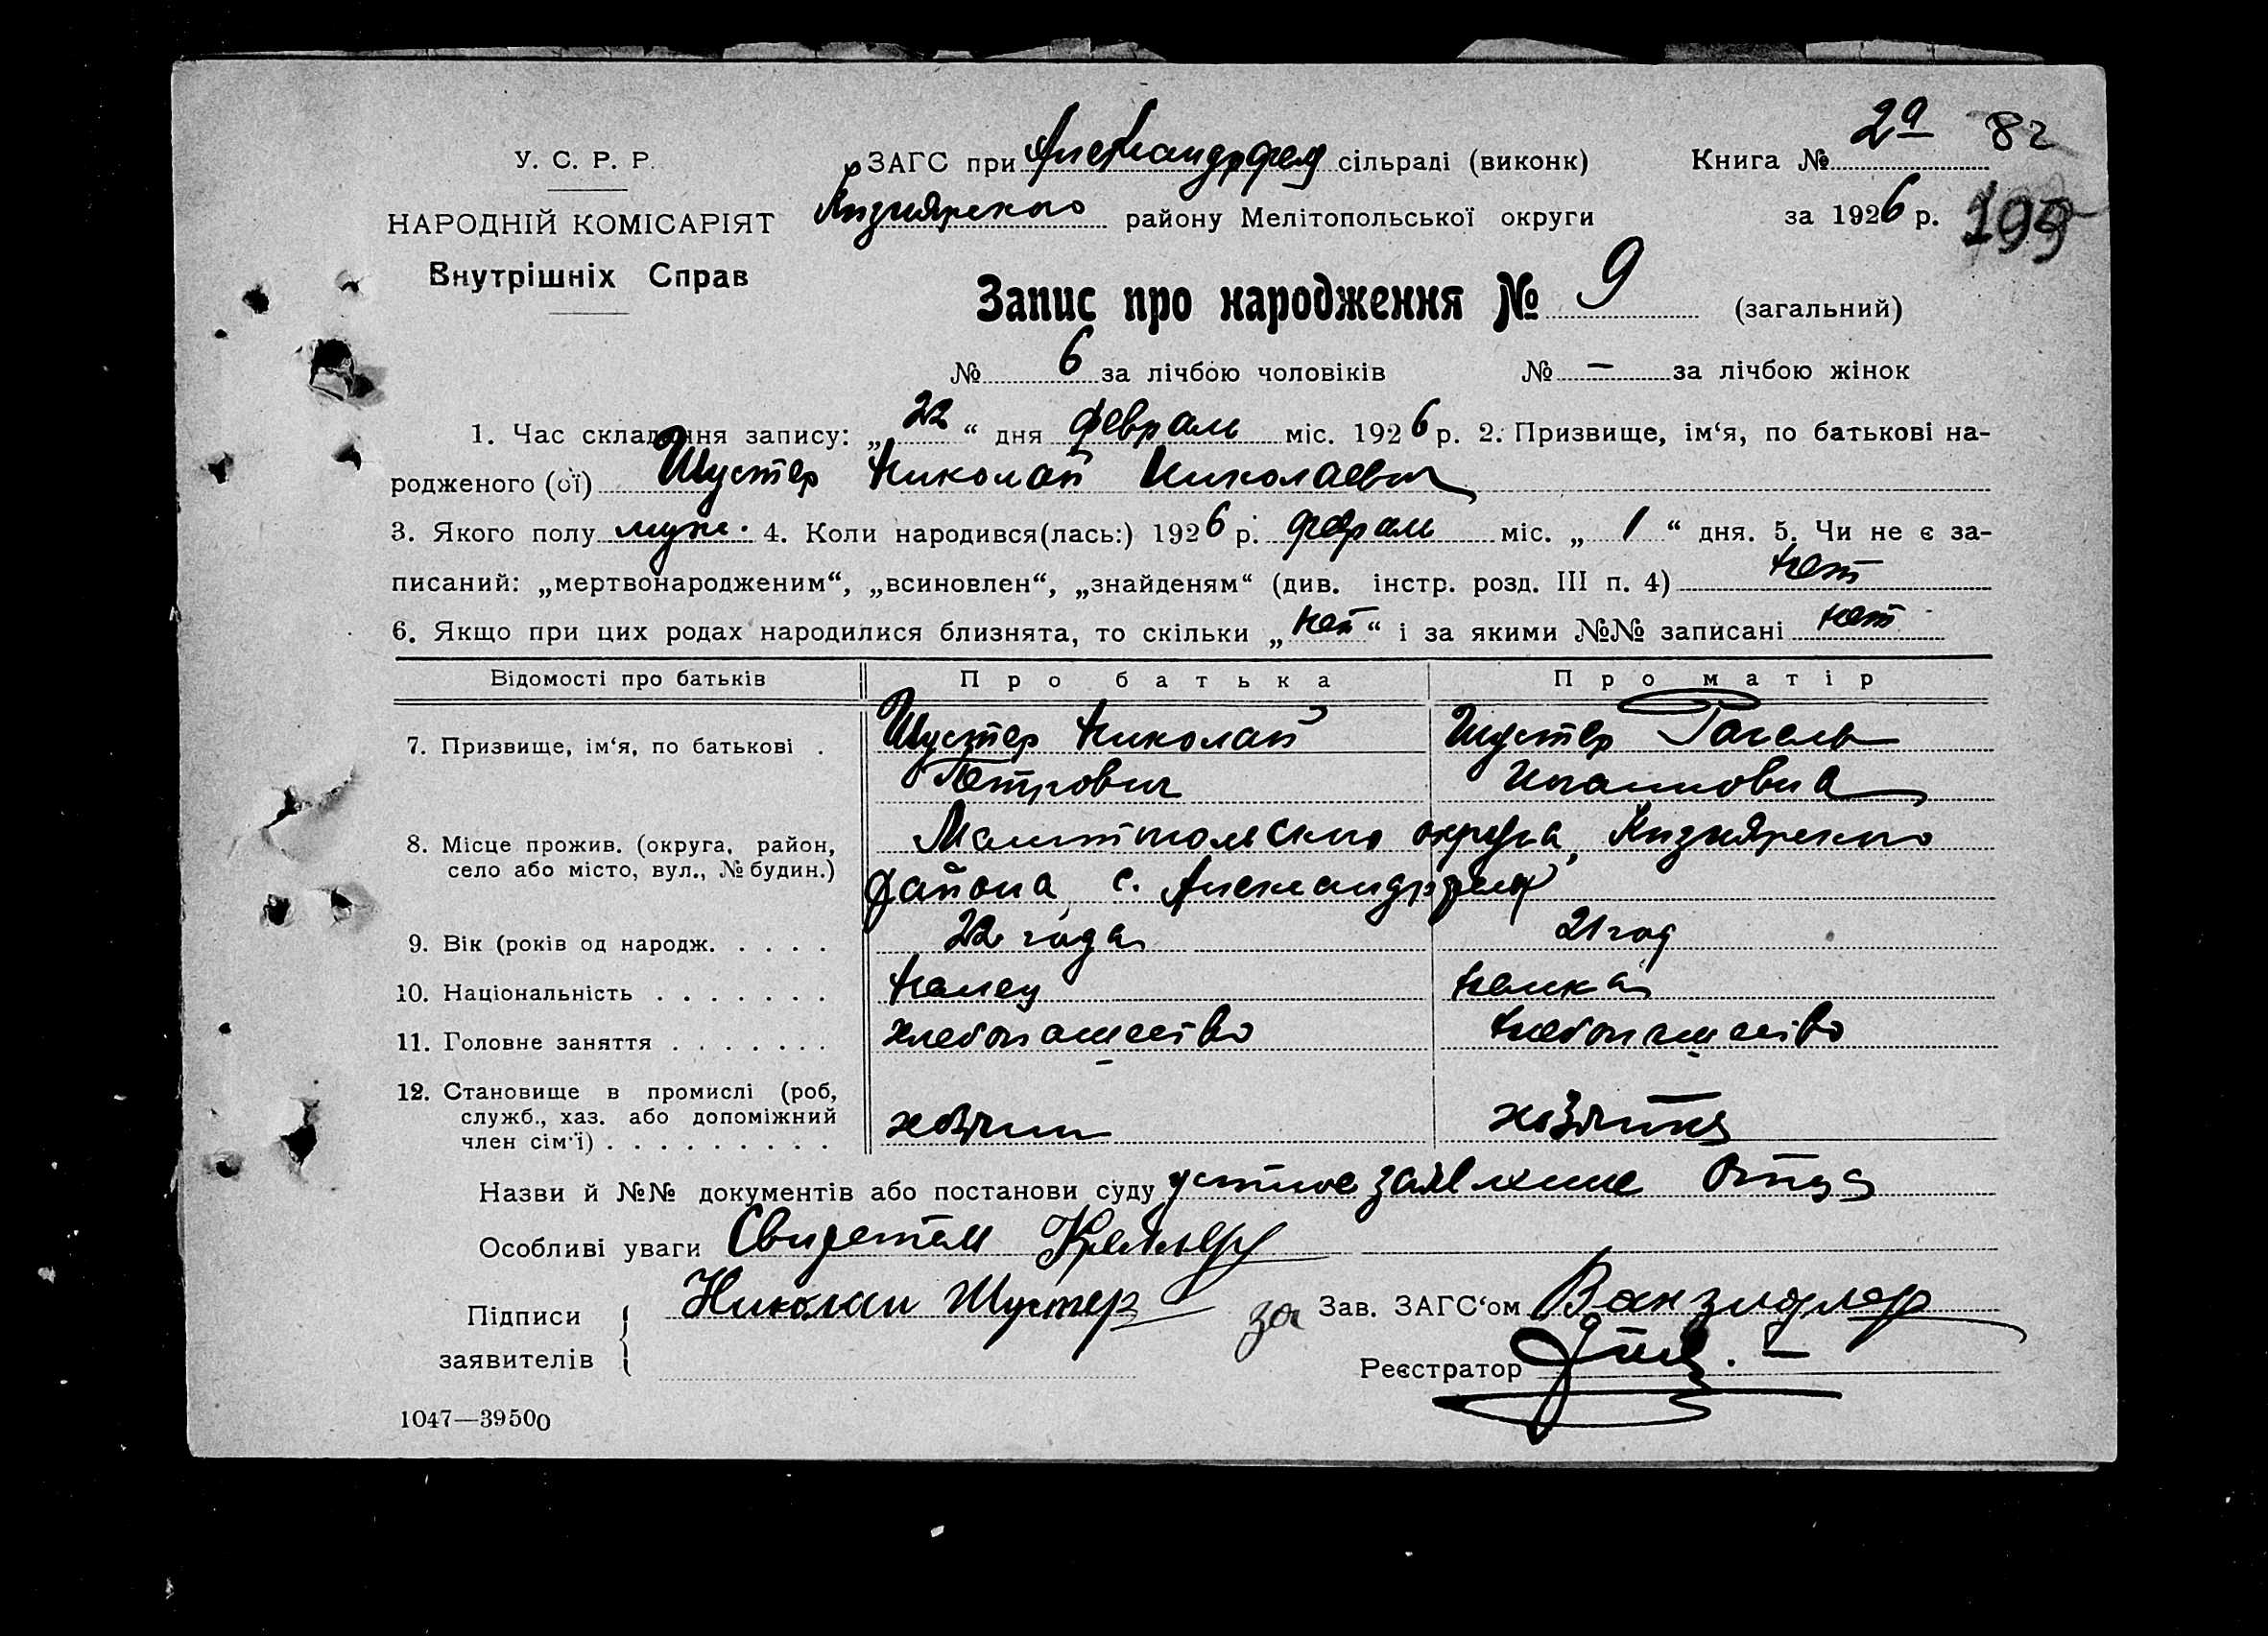 2а 82
У. С. Р. Р. ЗАГС при Александрфельд сільраді (виконк) Книга №
НАРОДНІЙ КОМІСАРІЯТ Кизиярского району Мелітопольської округи за 1926 р. 199
Внутрішніх Справ
Запис про народження № 9 (загальний)
№ 6 за лічбою чоловіків № — за лічбою жінок
1. Час складання запису: „22“ дня февраль міс. 1926 р. 2. Призвище, ім‘я, по батькові на-
родженого (ої) Шустер Николай Николаевич
3. Якого полу муж. 4. Коли народився(лась:) 1926 р. февраль міс. „1“ дня. 5. Чи не є за-
писаний: „мертвонародженим“, „всиновлен“, „знайденям“ (див. інстр. розд. III п. 4) нет
6. Якщо при цих родах народилися близнята, то скільки „нет“ і за якими №№ записані нет
Відомості про батьків Про батька Про матір
7. Призвище, ім‘я, по батькові . Шустер Николай Шустер Рагель
Петрович
8. Місце прожив. (округа, район, Мелитопольского округа, Кизиярского
село або місто, вул., № будин.) района с. Александрфельд
9. Вік (років од народж. . . . . 22 года 21 год
10. Національність . . . . . . . Немец Немка
11. Головне заняття . . . . . . . хлебопашество хлебопашество
12. Становище в промислі (роб,
служб., хаз. або допоміжний хозяин хозяйка
член сім‘ї) . . . . . . . . .
Назви й №№ документів або постанови суду устное заявление отца
Особливі уваги Свидетели
Підписи Николай Шустер за Зав. ЗАГС‘ом
заявителів Реєстратор
1047—39500